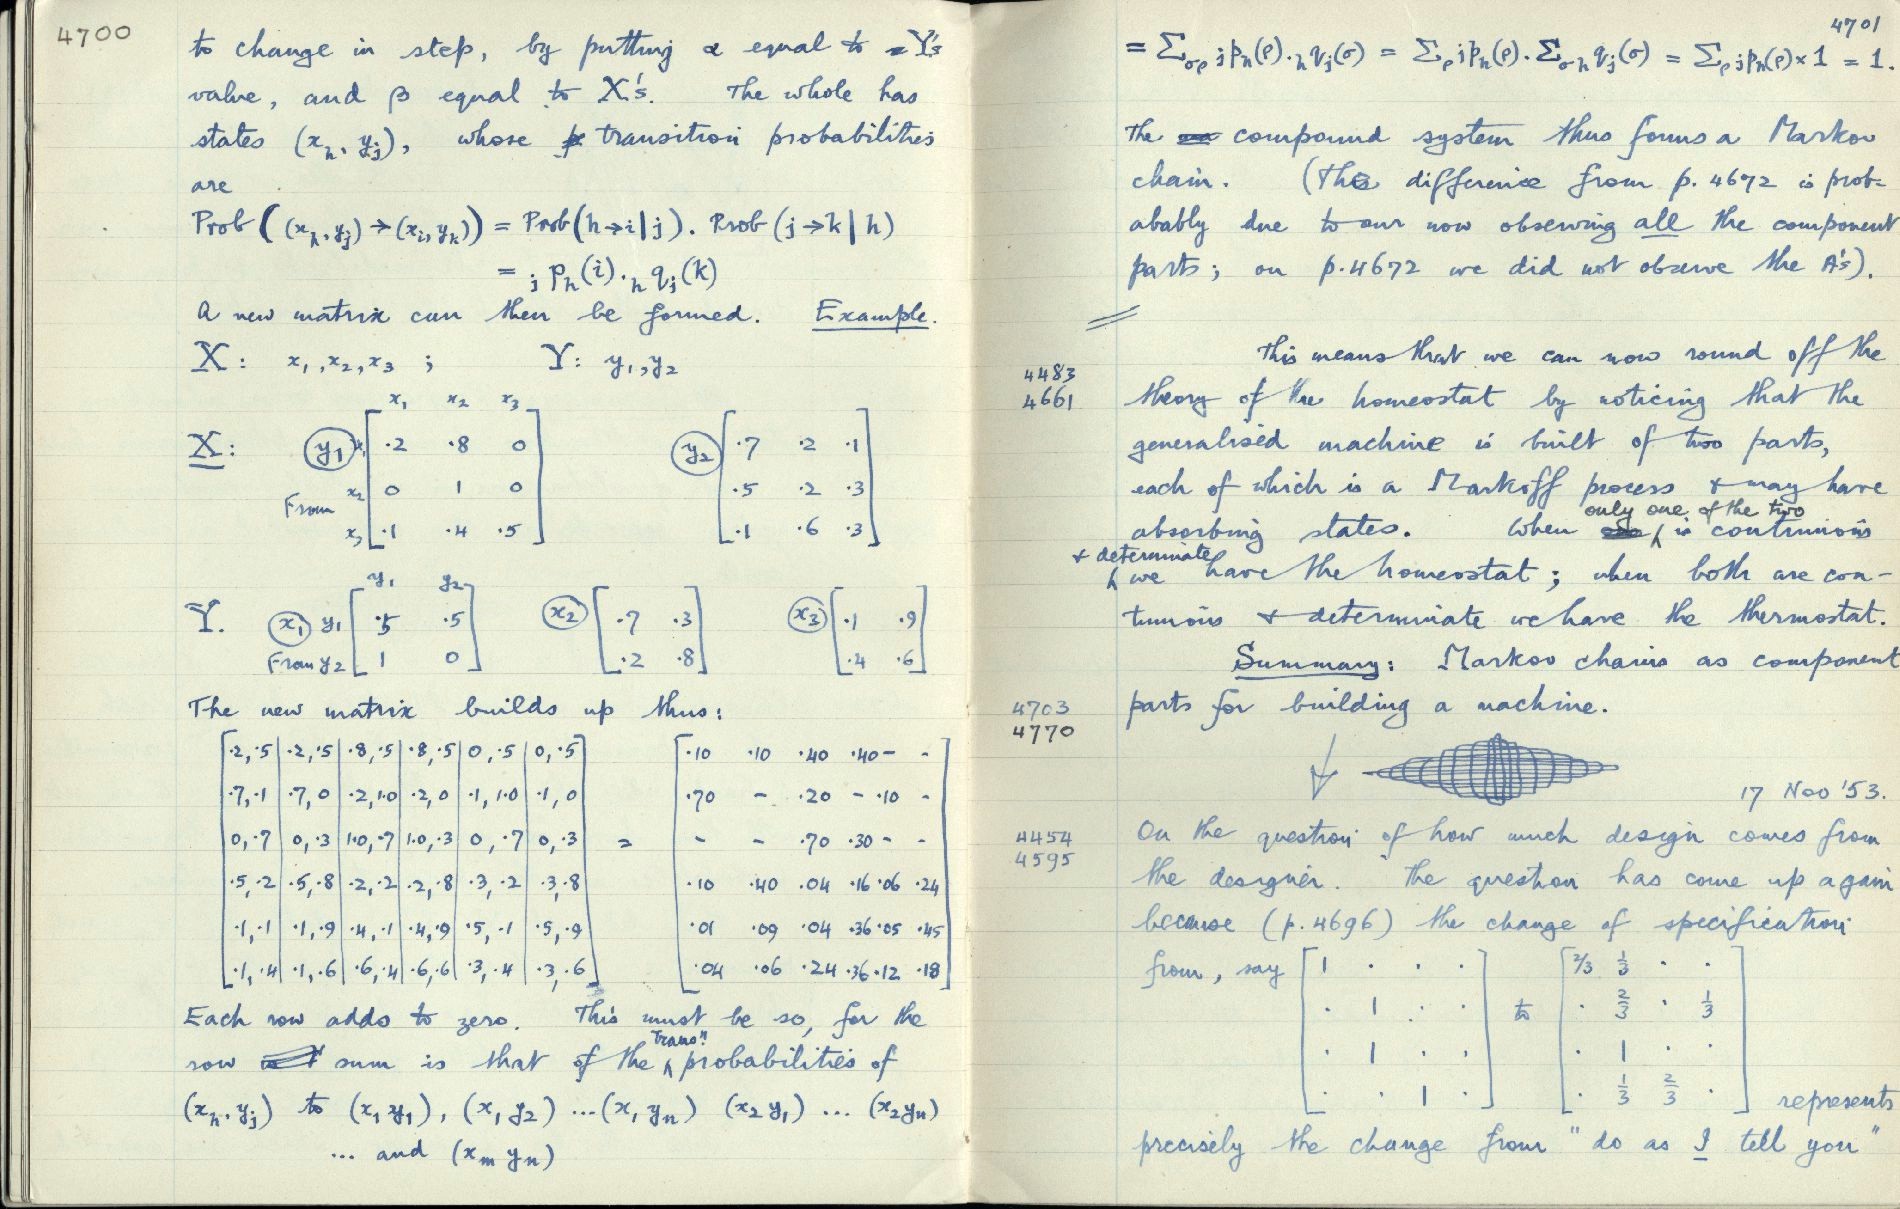 4700
to change in step, by putting α equal to Y's
value, and β equal to X's. The whole has
states (xh, yj), whose transition probabilities
are
Prob ((xh, yj) → (xi, yk)) = Prob(h→i|j). Prob (j→k|h)
= j ph(i). h qj(k)
A new matrix can then be formed. Example.
X: x1, x2, x3 ; Y: y1, y2
x1 x2 x3
X: y1 x1 ·2 ·8 0 y2 ·7 ·2 ·1
From x2 0 1 0 ·5 ·2 ·3
x3 ·1 ·4 ·5 ·1 ·6 ·3
y1 y2
Y. x1 y1 ·5 ·5 x2 ·7 ·3 x3 ·1 ·9
From y2 1 0 ·2 ·8 ·4 ·6
The new matrix builds up thus:
·2,·5 | ·2,·5 | ·8,·5 | ·8,·5 | 0,·5 | 0,·5 ·10 ·10 ·40 ·40 - -
·7,·1 | ·7,0 | ·2,1·0 | ·2,0 | ·1,1·0 | ·1,0 ·70 - ·20 - ·10 -
0,·7 | 0,·3 | 1·0,·7 | 1·0,·3 | 0,·7 | 0,·3 = - - ·70 ·30 - -
·5,·2 | ·5,·8 | ·2,·2 | ·2,·8 | ·3,·2 | ·3,·8 ·10 ·40 ·04 ·16 ·06 ·24
·1,·1 | ·1,·9 | ·4,·1 | ·4,·9 | ·5,·1 | ·5,·9 ·01 ·09 ·04 ·36 ·05 ·45
·1,·4 | ·1,·6 | ·6,·4 | ·6,·6 | ·3,·4 | ·3,·6 ·04 ·06 ·24 ·36 ·12 ·18
Each row adds to zero. This must be so, for the
row sum is that of the transn probabilities of
(xh, yj) to (x1 y1), (x1 y2) ... (x1 yn) (x2 y1) ... (x2 yn)
... and (xm yn)
4701
= Σσρ j ph(ρ). h qj(σ) = Σρ j ph(ρ). Σσ h qj(σ) = Σρ j ph(ρ) × 1 = 1.
The compound system thus forms a Markov
chain. (The difference from p. 4672 is prob-
ably due to our now observing all the component
parts; on p. 4672 we did not observe the A's).
This means that we can now round off the
4483
4661 theory of the homeostat by noticing that the
generalised machine is built of two parts,
each of which is a Markoff process & may have
absorbing states. When only one of the two is continuous
& determinate we have the homeostat; when both are con-
tinuous & determinate we have the thermostat.
Summary: Markov chains as component
4703 parts for building a machine.
4770
17 Nov '53.
4454 On the question of how much design comes from
4595 the designer. The question has come up again
because (p. 4696) the change of specification
from, say 1 · · · 2/3 1/3 · ·
· 1 · · to · 2/3 · 1/3
· 1 · · · 1 · ·
· · 1 · · 1/3 2/3 · represents
precisely the change from "do as I tell you"